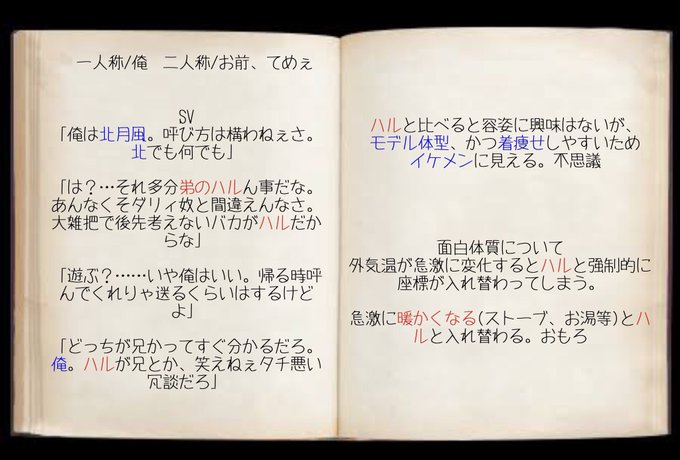 一人称/俺 二人称/お前、てめぇ
SV
「俺は北月風。呼び方は構わねぇさ。
北でも何でも」
「は？…それ多分弟のハルん事だな。
あんなくそダリィ奴と間違えんなさ。
大雑把で後先考えないバカがハルだか
らな」
「遊ぶ？……いや俺はいい。帰る時呼
んでくれりゃ送るくらいはするけど
よ」
「どっちが兄かってすぐ分かるだろ。
俺。ハルが兄とか、笑えねぇタチ悪い
冗談だろ」
ハルと比べると容姿に興味はないが、
モデル体型、かつ着痩せしやすいため
イケメンに見える。不思議
面白体質について
外気温が急激に変化するとハルと強制的に
座標が入れ替わってしまう。
急激に暖かくなる(ストーブ、お湯等)とハ
ルと入れ替わる。おもろ